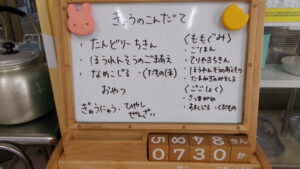 きょうのこんだて
・たんどりーちきん
・ほうれんそうのごまあえ
・なめこじる ・くだもの(末)
おやつ
ぎゅうにゅう、ひやし
ぜんざい
くももぐみ〉
・ごはん
・てりやきちきん
・ほうれんそうのあえもの
・たまねぎのみそしる
〈ごごしょく〉
・くだもの
5848か
0730